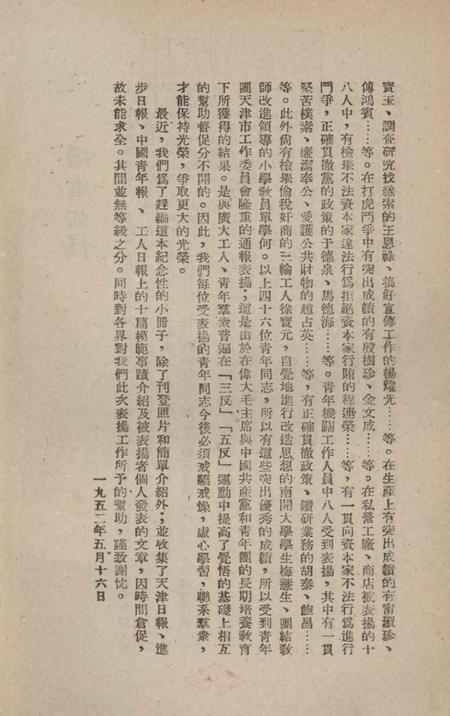 寶玉、調查研究找線索的王恩祿、搞好宣傳工作的楊燦光……等。在生產上有突出成績的有甯淑珍、
傅鴻賓……等。在打虎鬥爭中有突出成績的有殷樹珍、金文成……等。在私營工廠、商店被表揚的十
八人中，有檢舉不法資本家違法行爲拒絕資本家行賄的程連榮……等，有一貫向資本家不法行爲進行
鬥爭，正確貫徹黨的政策的于德泉、馬德海……等。青年機關工作人員中八人受到表揚，其中有一貫
堅苦樸素、廉潔奉公、愛護公共財物的趙占英……等，有正確貫徹政策、鑽研業務的胡泰、鮑昌……
等。此外尚有檢舉偷稅奸商的三輪工人徐寶元，自覺地進行改造思想的南開大學學生梅慧生、團結敎
師改進領導的小學敎員單學何。以上四十六位青年同志，所以有這些突出優秀的成績，所以受到青年
團天津市工作委員會隆重的通報表揚；這是由於在偉大毛主席與中國共產黨和青年團的長期培養敎育
下所獲得的結果。是與廣大工人、青年羣衆普遍在「三反」「五反」運動中提高了覺悟的基礎上相互
的幫助督促分不開的。因此，我們每位受表揚的青年同志今後必須戒驕戒燥，虛心學習，聯系羣衆，
才能保持光榮，爭取更大的光榮。
最近，我們爲了趕編這本紀念性的小册子，除了刊登照片和簡單介紹外；並收集了天津日報、進
步日報、中國青年報、工人日報上的十篇模範事蹟介紹及被表揚者個人發表的文章，因時間倉促，
故未能求全。其間並無等級之分。同時對各界對我們此次表揚工作所予的幫助，謹致謝忱。
一九五二年五月十六日